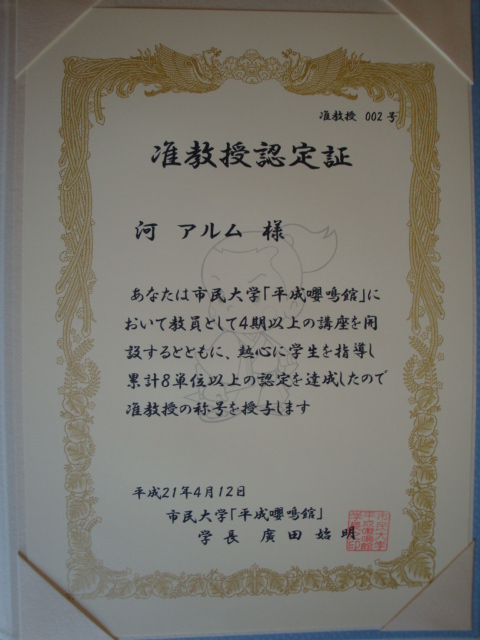 准教授 002号
准教授認定証
河 アルム 様
あなたは市民大学「平成嚶鳴館」に
おいて教員として4期以上の講座を開
設するとともに、熱心に学生を指導し
累計8単位以上の認定を達成したので
准教授の称号を授与します
平成21年4月12日
市民大学「平成嚶鳴館」
学長 廣田 始明
市民大学
平成嚶鳴館
学長之印